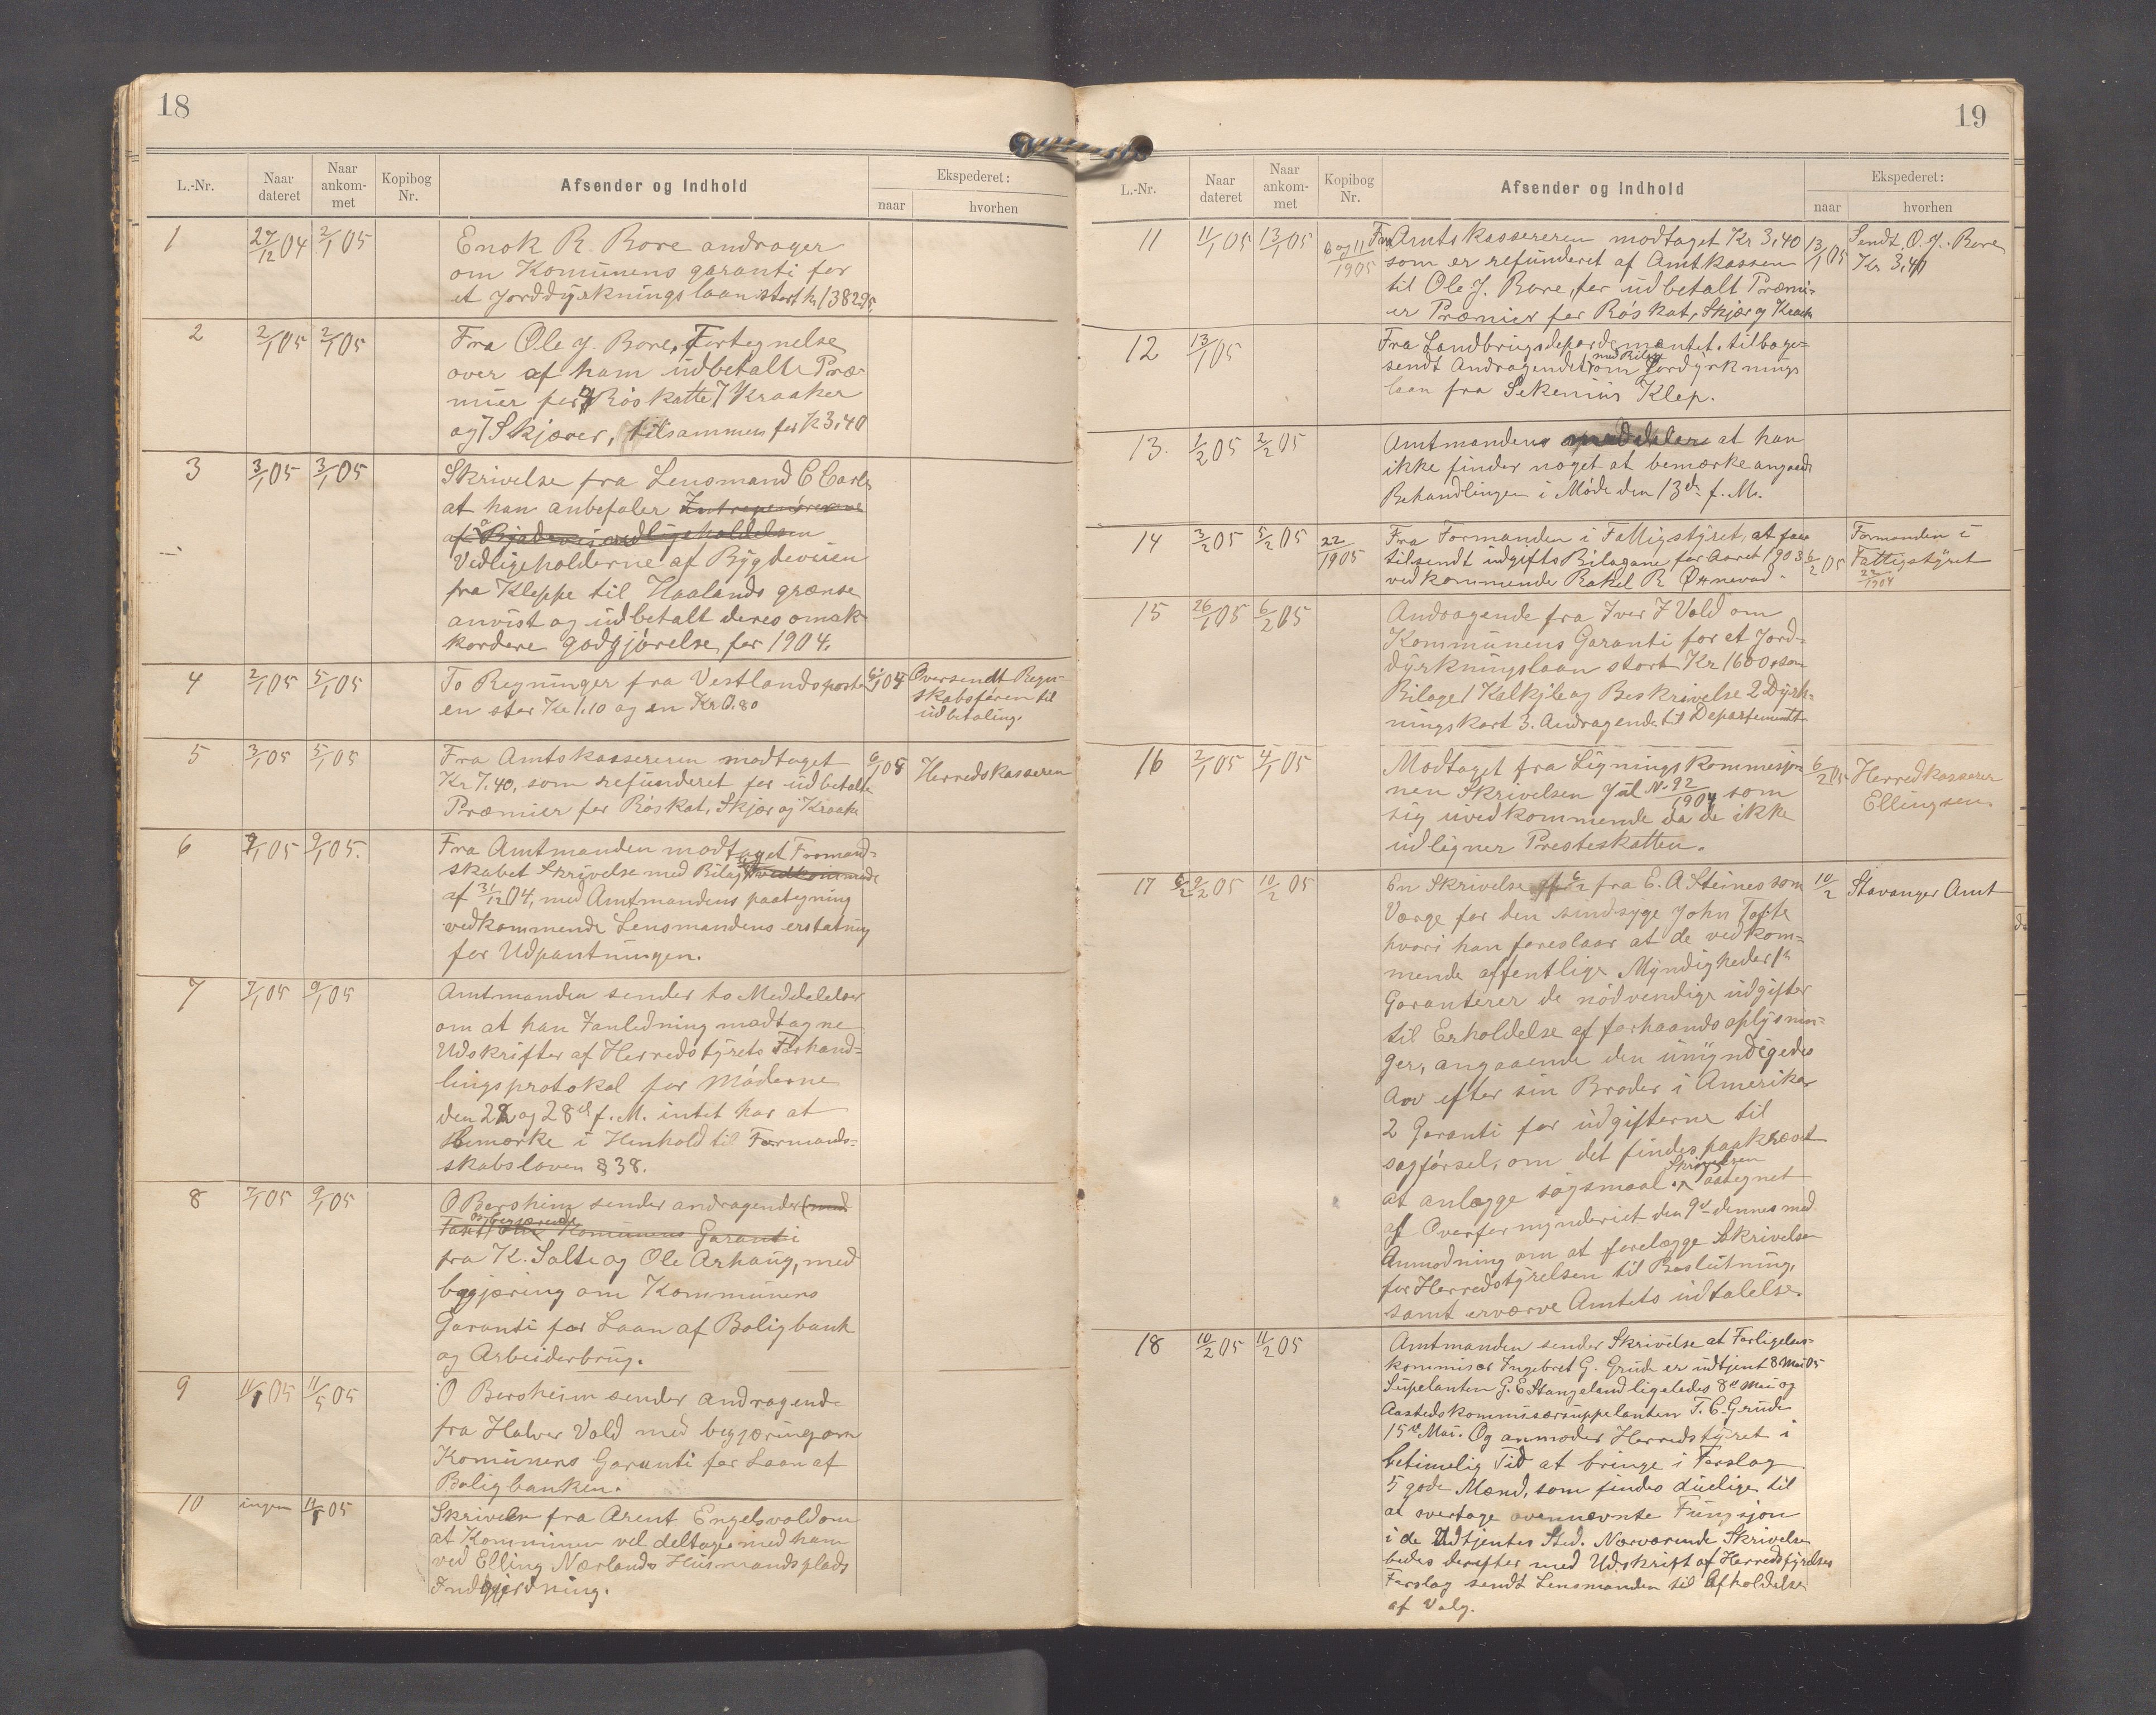 18
L.-Nr.
Naar dateret
Naar ankommet
Kopibog Nr.
Afsender og Indhold
Ekspederet:
naar
hvorhen
1 27/12 04 2/1 05
Enok R. Bore andrager
om Komünens garanti for
et Jorddÿrknings laan stort kr 1382.95
2 2/1 05 2/1 05
Fra Ole J. Bore, Fortegnelse
over af ham üdbetalte Præ-
mier for Röskatte 7 Kraaker
og 7 Skjærer, tilsammen for K 3,40
3 3/1 05 3/1 05
Skrivelse fra Lensmand C
at han anbefaler
Vedligeholderne af Bÿgdeveien
fra Kleppe til Haalands grænse
anvist og üdbetalt deres omak-
kordere godgjörelse for 1904.
4 2/1 05 5/1 05
To Regninger fra Vestlandsposten 6/1 04 Oversendt Regn-
en stor Kr 1.10 og en Kr 0.80 skabsfören til
üdbetaling.
5 3/1 05 5/1 05
Fra Amtskassereren modtaget 6/1 05 Herredskasseren
Kr 7.40, som refünderet for üdbetalte
Præmier for Röskat, Skjær og Kraake
6 7/1 05 9/1 05.
Fra Amtmanden modtaget Formand-
skabet Skrivelse med Bilag
af 31/12 04, med Amtmandens paategning
vedkommende Lensmandens erstatning
for Udpantningen.
7 7/1 05 9/1 05
Amtmanden sender to Meddelelser
om at han Janledning modtagne
Udskrifter af Herredstÿrets Forhand-
lingsprotokol for Möderne
den 22 og 28d f. M. intet har at
Bemærke i Henhold til Formands-
skabsloven § 38.
8 7/1 05 9/1 05
O Bersheim sender andragender
Komünens Garanti
fra K. Salte og Ole Arhaüg, med
begjæring om Kommünens
Garanti for Laan af Boligbank
og Arbeiderbrüg.
9 11/1 05 11/5 05
O Bersheim sender andragende
fra Halver Vold med begjæring om
Komünens Garanti for Laan af
Boligbanken.
10 ingen 11/1 05
Skrivelsen fra Arent Engelsvold om
at Kommünen vel deltager med ham
ved Elling Nærlands Hüsmandsplads
Indgjerdning.
19
L.-Nr.
Naar dateret
Naar ankommet
Kopibog Nr.
Afsender og Indhold
Ekspederet:
naar
hvorhen
11 11/1 05 13/1 05 6 og 11/1905
Fra Amtskassereren modtaget Kr 3,40 13/1 05 Sendt O. J. Bore
som er refunderet af Amtkassen Kr 3,40
til Ole J. Bore, for üdbetalt Præmi-
er Præmier for Röskat, Skjær og Kraak
12 13/1 05
Fra Landbrügsdepardemæntet. tilbage-
sendt Andragendet med Bilag om Jordÿrknings
laan fra Sekenius Klep.
13. 1/2 05 2/2 05
Amtmanden meddeler at han
ikke finder noget at bemærke angaaende
Behandlingen i Möde den 13de f. M.
14 3/2 05 5/2 05 22/1905
Fra Formanden i Fattigstÿret, at faa Formanden i
tilsendt üdgifts Bilagene for Aaret 1903 6/2 05 Fattigstÿret
vedkommende Rakel R Ornevad. 22/1904
15 26/1 05 6/2 05
Andragende fra Iver J Vold om
Kommünens Garanti for et Jord-
dÿrkningslaan stort Kr 1600, som
Bilage 1 Kalkÿle og Beskrivelse 2 Dÿrk-
ningskart 3. Andragende til Departementet
16 2/1 05 4/1 05
Modtaget fra Ligningskommesjo- 6/2 05 Herredkasserer
nen Skrivelsen Jül No 92/1904 som Ellingsen
sig üvedkommende da de ikke
üdligner Presteskatten.
17 6/2 9/2 05 10/2 05
En Skrivelse af 6/2 fra E. A Steines som 10/2 Stavanger Amt
Værge for den sindsyge John Tofte
hvori han foreslaar at de vedkom-
mende offentlige Mÿndigheder
Garanterer de nödvendige üdgifter
til Erholdelse af forhaands oplÿsnin-
ger, angaaende den ümÿndiges
Arv efter sin Broder i Amerika
2 Garanti for üdgifterne til
sagförsel, om det findes paakrævet
at anlægge sögsmaal. Skrivelsen paategnet
af Overformynderiet den 9de dennes med
Anmodning om at forelægge Skrivelsen
for Herredstÿrelsen til Beslütning,
samt erværve Amtets üdtalelse.
18 10/2 05 11/2 05
Amtmanden sender Skrivelse at Forligelses-
kommisær Ingebret G. Grüde er üdtjent 8 Mai 05
Süpelanten G. E Stangeland ligeledes 8de Mai og
Aastedskommisærsüppelanten T. E. Grüde
15de Mai. Og anmoder Herredstÿret i
betimelig Tid at bringe i Forslag
5 gode Mænd, som findes düelige til
at overtage ovennævnte Füngsjon
i de Udtjentes Sted. Nærværende Skrivelse
bedes derefter med Udskrift af Herredstÿrelses
Forslag sendt Lensmanden til Afholdelse
af Valg.